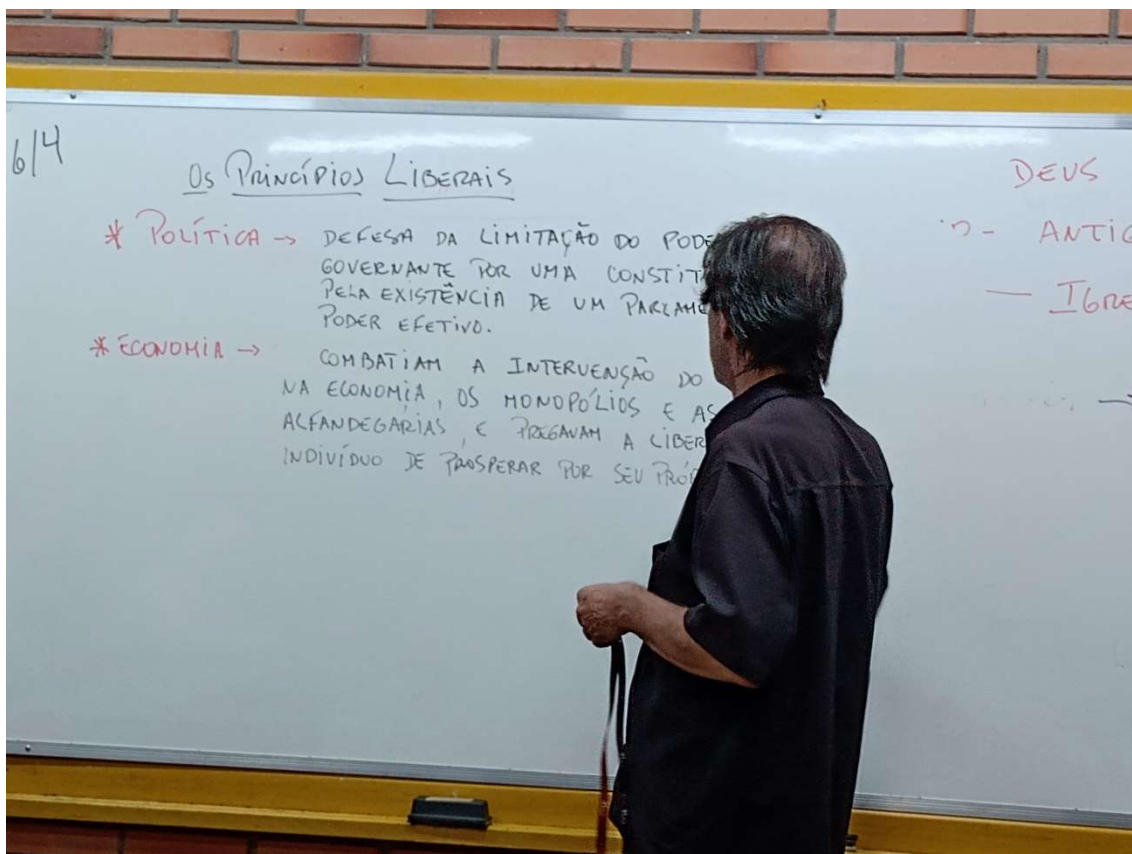 6/4
Os PRINCÍPIOS LIBERAIS
* POLÍTICA → DEFESA DA LIMITAÇÃO DO PODE
GOVERNANTE POR UMA CONSTIT
PELA EXISTÊNCIA DE UM PARLAME
PODER EFETIVO.
* ECONOMIA → COMBATIAM A INTERVENÇÃO DO
NA ECONOMIA, OS MONOPÓLIOS E AS
ALFANDEGÁRIAS, E PREGAVAM A LIBER
INDIVÍDUO DE PROSPERAR POR SEU PRÓP
DEUS
- ANTIG
— IGRE
→